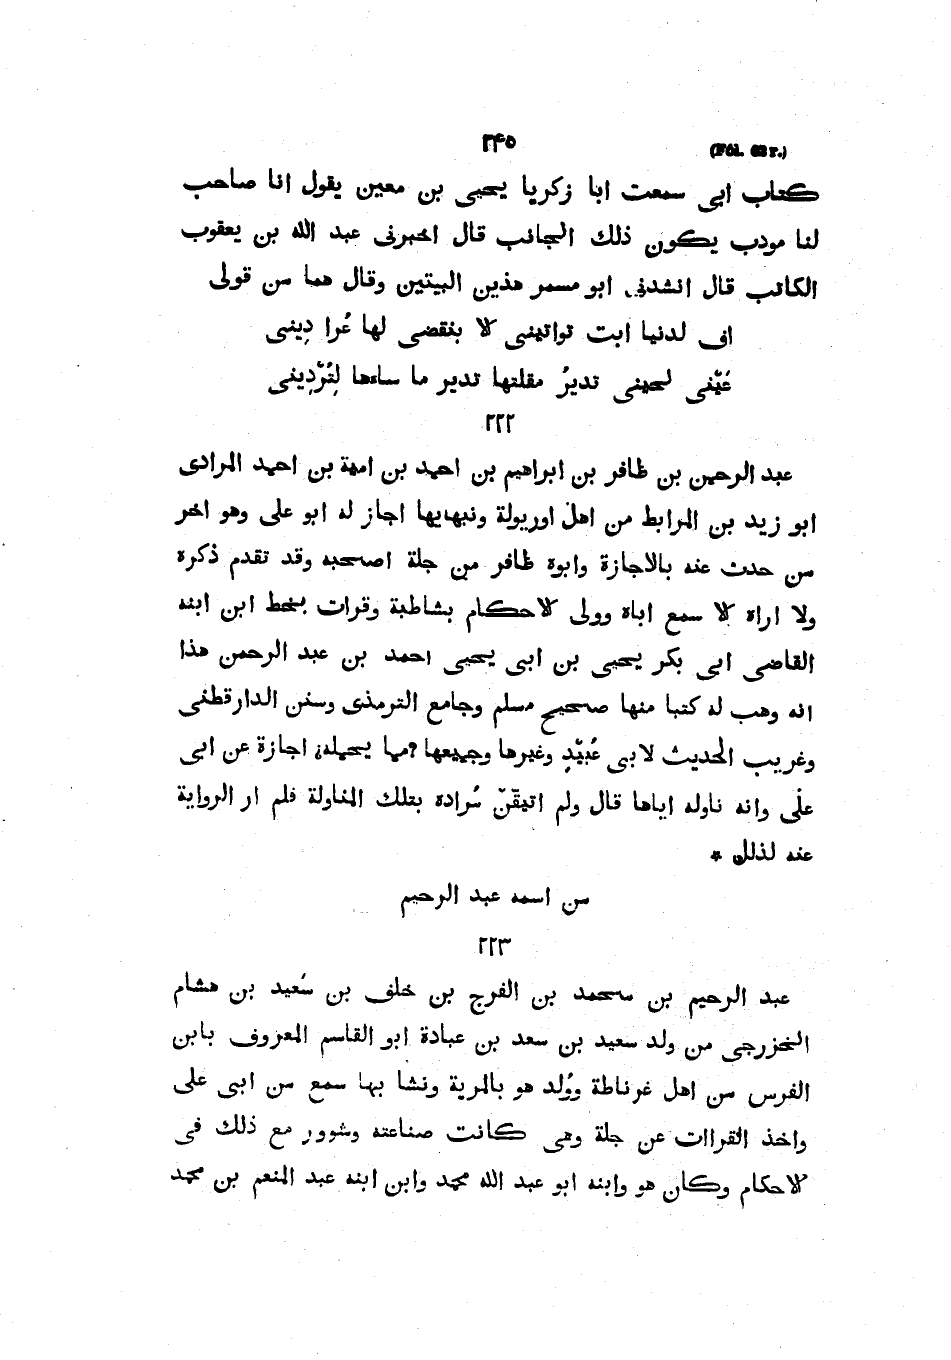 ٢٤٥ (Fol. 62 r.)
كتاب ابى سمعت ابا زكريا يحيى بن معين يقول انا صاحب
لنا مودب يكون ذلك الجانب قال اخبرنى عبد الله بن يعقوب
الكاتب قال انشدنى ابو مسهر هذين البيتين وقال هما من قولى
اف لدنيا ابت تواتينى لا بنقضى لها عُرا دِينى
عَيْنى لحينى تديرُ مقلتها تدير ما ساءها لِتُرْدِينى
٢٢٢
عبد الرحمن بن ظافر بن ابراهيم بن احمد بن امية بن احمد المرادى
ابو زيد بن المرابط من اهل اوريولة ونبهايها اجاز له ابو على وهو اخر
من حدث عنه بالاجازة وابوه ظافر من جلة اصحبه وقد تقدم ذكره
ولا اراه لا سمع اباه وولى لاحكام بشاطبة وقرات بخط ابن ابنه
القاضى ابى بكر يحيى بن ابى يحيى احمد بن عبد الرحمن هذا
انه وهب له كتبا منها صحيح مسلم وجامع الترمذى وسنن الدارقطنى
وغريب الحديث لابى عُبَيْدٍ وغيرها وجميعها مما يحمله اجازة عن ابى
على وانه ناوله اياها قال ولم اتيقّنْ مُراده بتلك المناولة فلم ار الرواية
عنه لذلك *
من اسمه عبد الرحيم
٢٢٣
عبد الرحيم بن محمد بن الفرج بن خلف بن سَعيد بن هشام
الخزرجى من ولد سعيد بن سعد بن عبادة ابو القاسم المعروف بابن
الفرس من اهل غرناطة ووُلد هو بالمرية ونشا بها سمع من ابى على
واخذ القراات عن جلة وهى كانت صناعته وشوور مع ذلك فى
لاحكام وكان هو وابنه ابو عبد الله محمد وابن ابنه عبد المنعم بن محمد